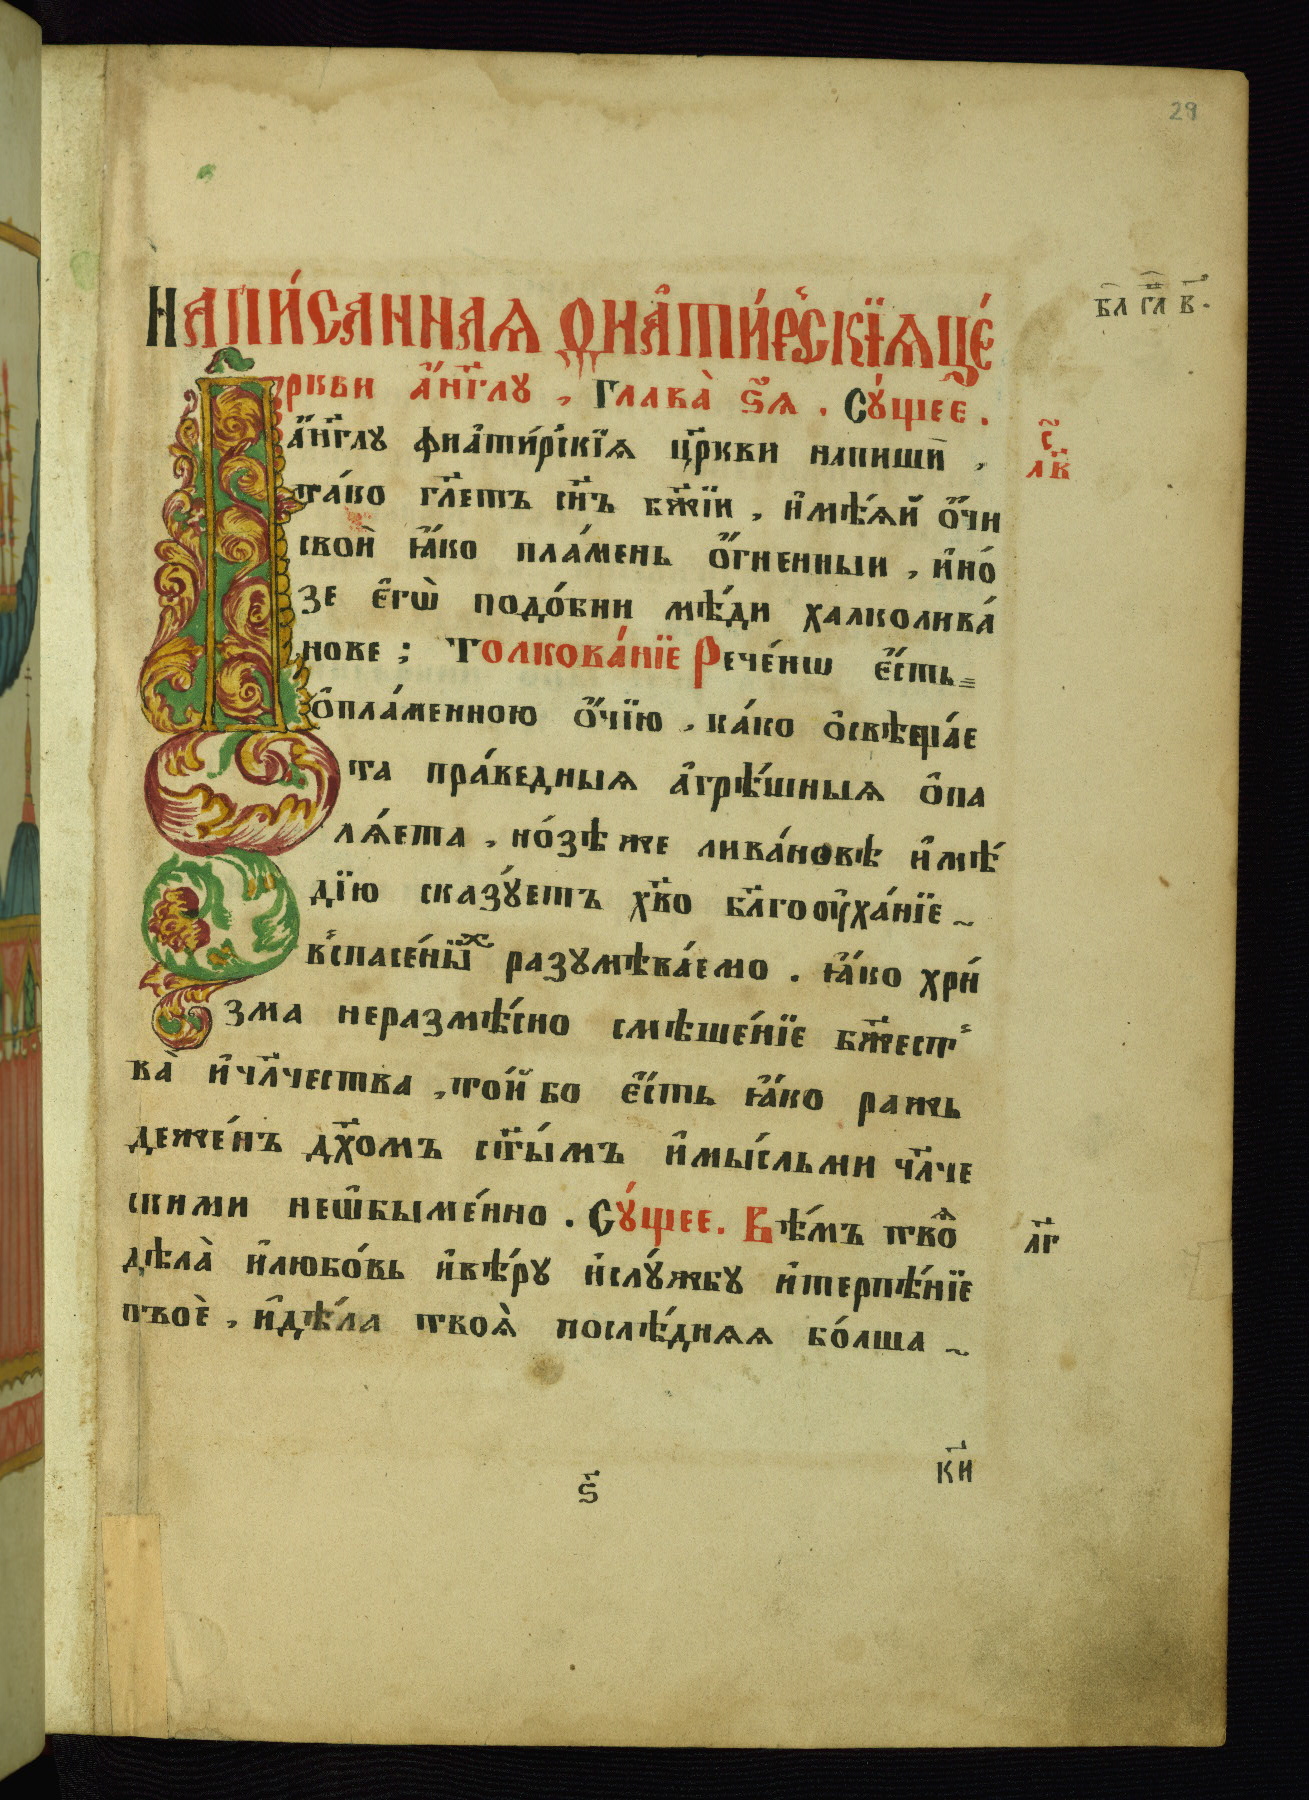 29
НАПИ́САННАѦ ѲИА҆ТИ́РСКЇѦ ЦЕ́
ркви а҆́нг҃лу, Глава̀ ѕ҃ѧ. Сꙋ́щее.
а҆́нг҃лу фиа҆ти́рскїѧ цр҃кви напиши̏,
та́ко гл҃етъ сн҃ъ бж҃їи, и҆мѣ́ѧй ѻ҆́чи
свои̏ ꙗ҆́ко пла́мень ѻ҆́гненныи, и҆но́
зе є҆гѡ̀ подо́бни мѣ́ди халколива́
нове; Толкова́нїе Рече́нѡ є҆́сть
ѻ҆пла́менною ѻ҆́чїю, ка́ко ѻ҆свѣща́е
та пра́ведныѧ а҆грѣ́шныѧ ѻ҆па
лѧ́ета, но́зѣ же лива́новѣ и҆мѣ́
дїю сказꙋ́етъ хв҃о бл҃гоꙋ҆ха́нїе
вспасе́нїих разумѣва́емо. ꙗ҆́ко хри́
зма неразмѣ́сно смѣше́нїе бж҃ест
ва̀ и҆чл҃чества, то́й бо є҆́сть ꙗ҆́ко ражь
деже́нъ дх҃омъ ст҃ы́мъ и҆мы́сльми чл҃че
скими неѿбыме́нно. Сꙋ́щее. Вѣ́мъ твоѧ̀
дѣла̀ и҆любо́вь и҆вѣ́ру и҆слꙋ́жбу и҆терпѣ́нїе
твое̏, и҆дѣ́ла твоѧ̀ послѣ́днѧѧ бо́лша
бл гл в.
с҃
л҃в
л҃г
ѕ҃
к҃и